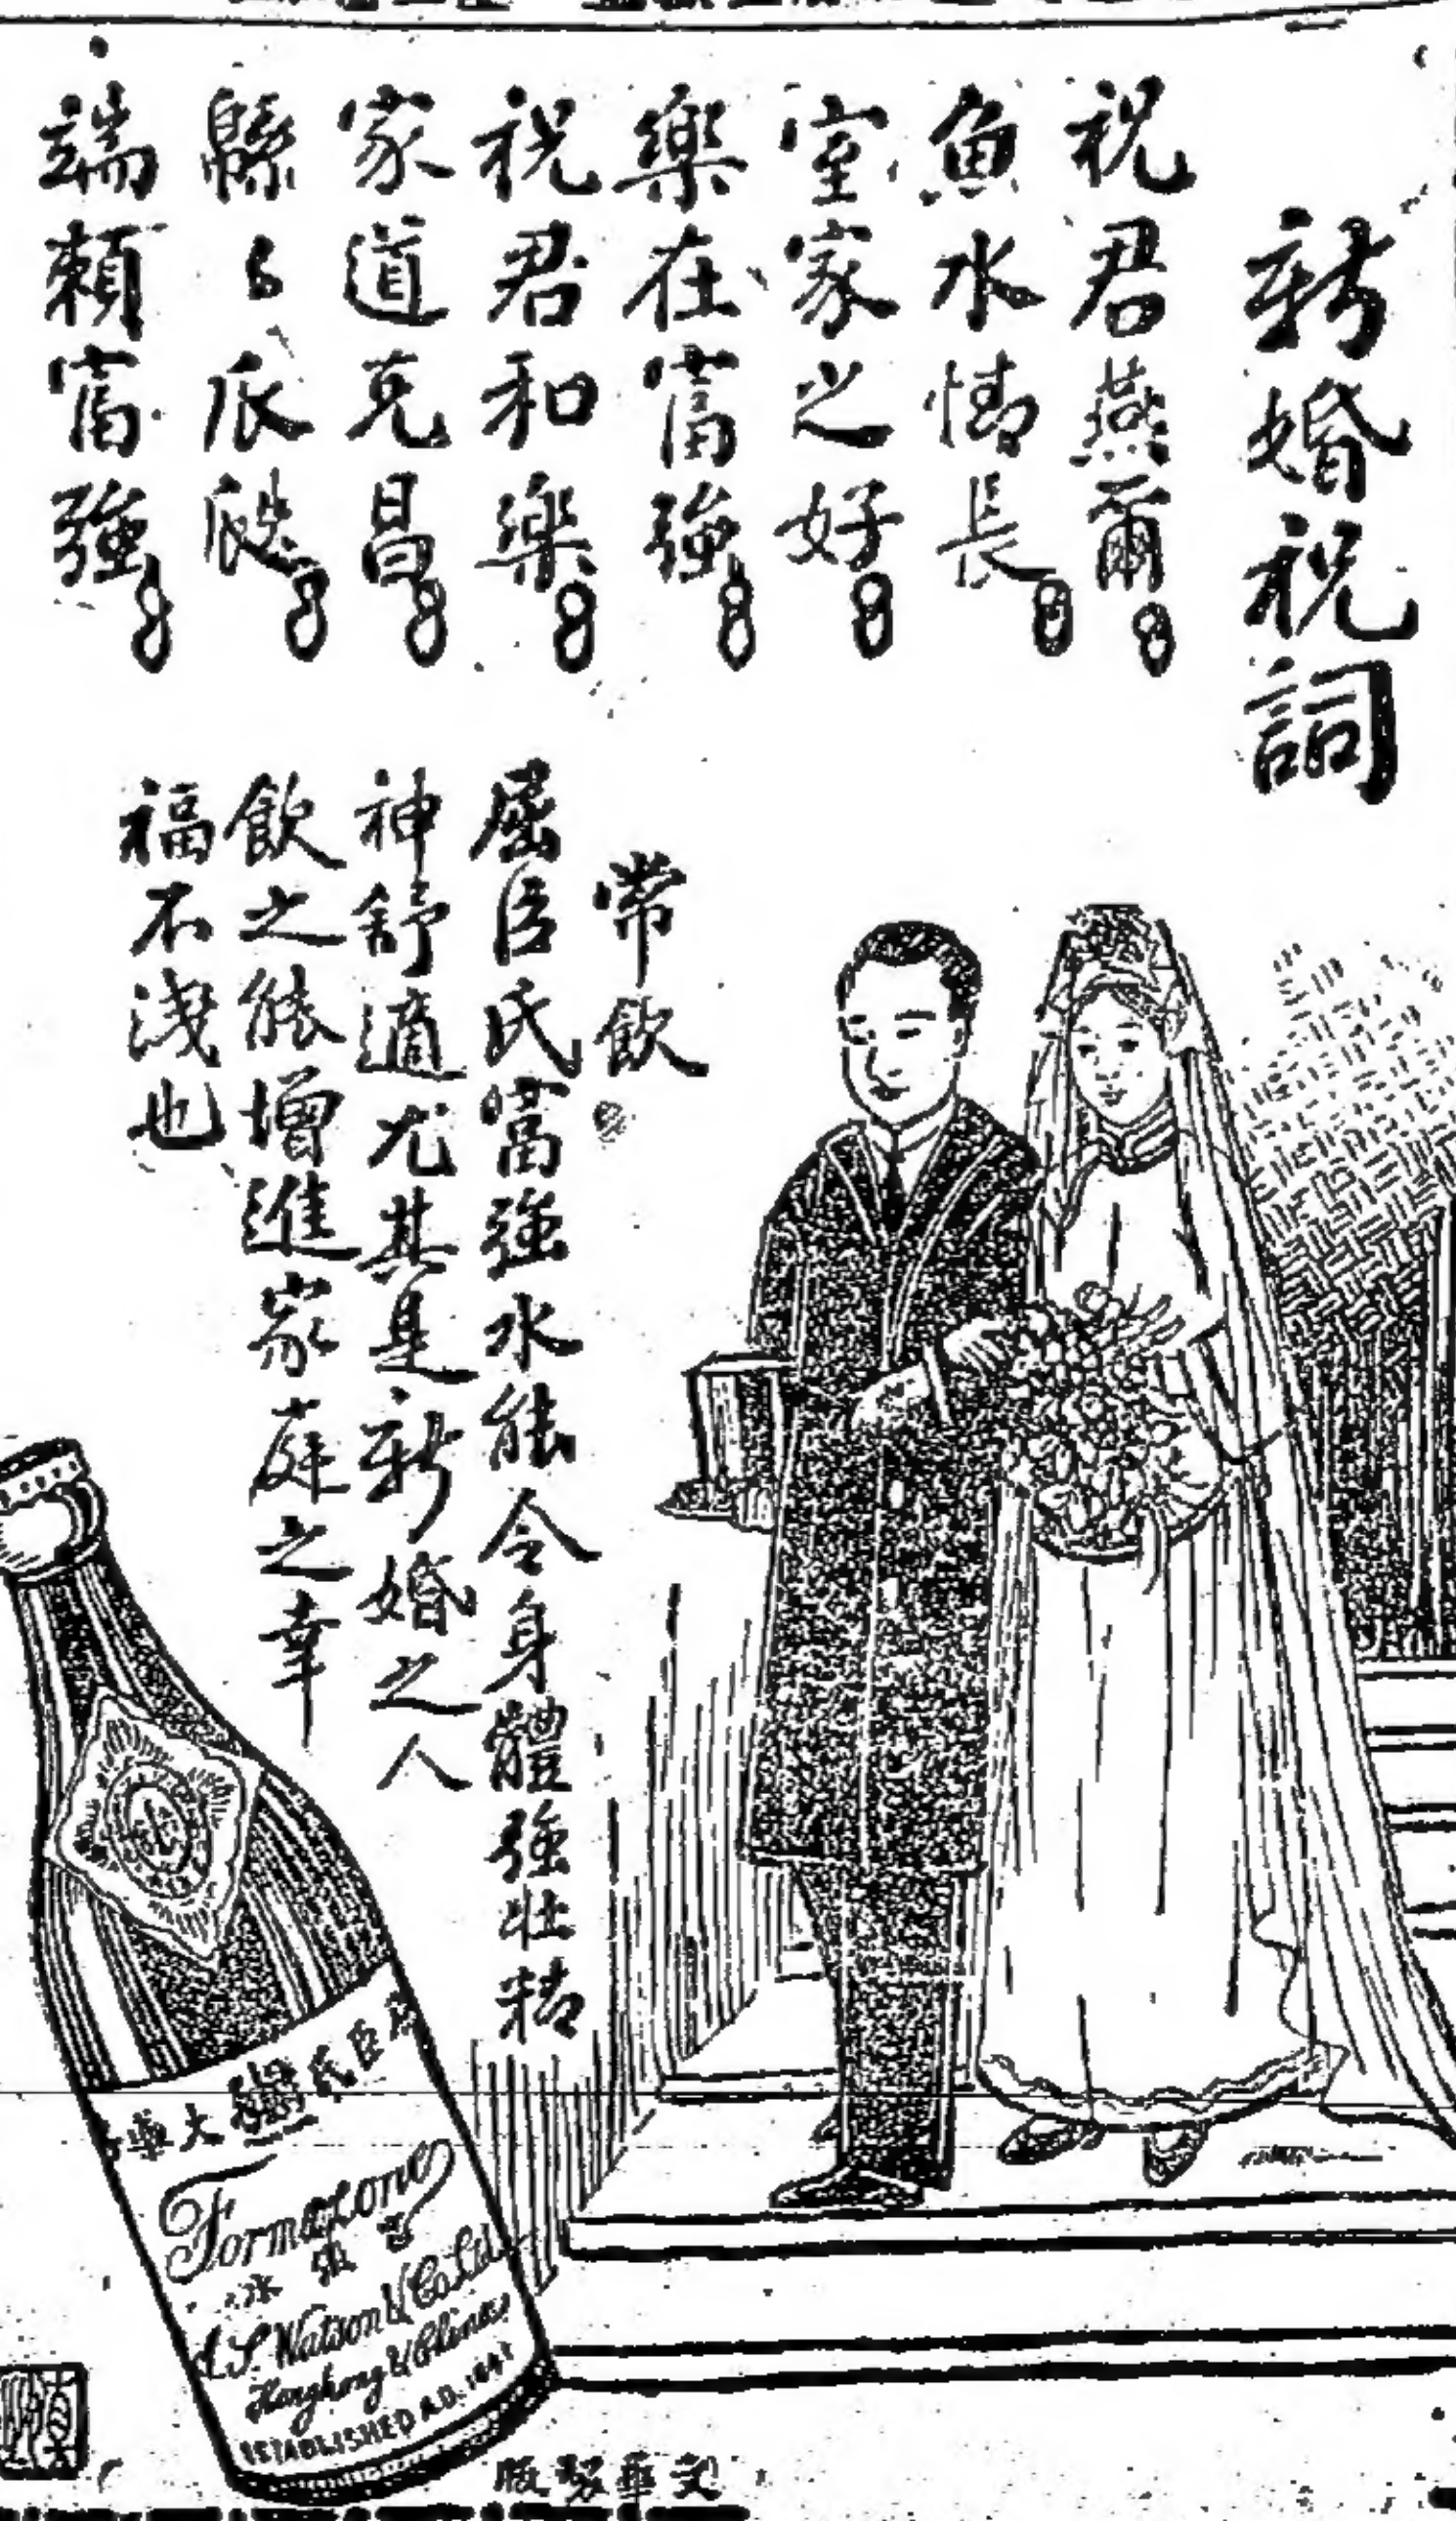 新婚祝詞
祝君燕爾
魚水情長
室家之好
樂在富強
祝君和樂
家道克昌
緜々瓜瓞
端賴富強
常飲
屈臣氏富強水能令身體強壯精
神舒適尤其是新婚之人
飲之能增進家庭之幸
福不淺也
屈臣氏
大藥
Formazone
富強水
A.S. Watson & Co. Ltd.
Hongkong & China
ESTABLISHED A.D. 1841
文華製版